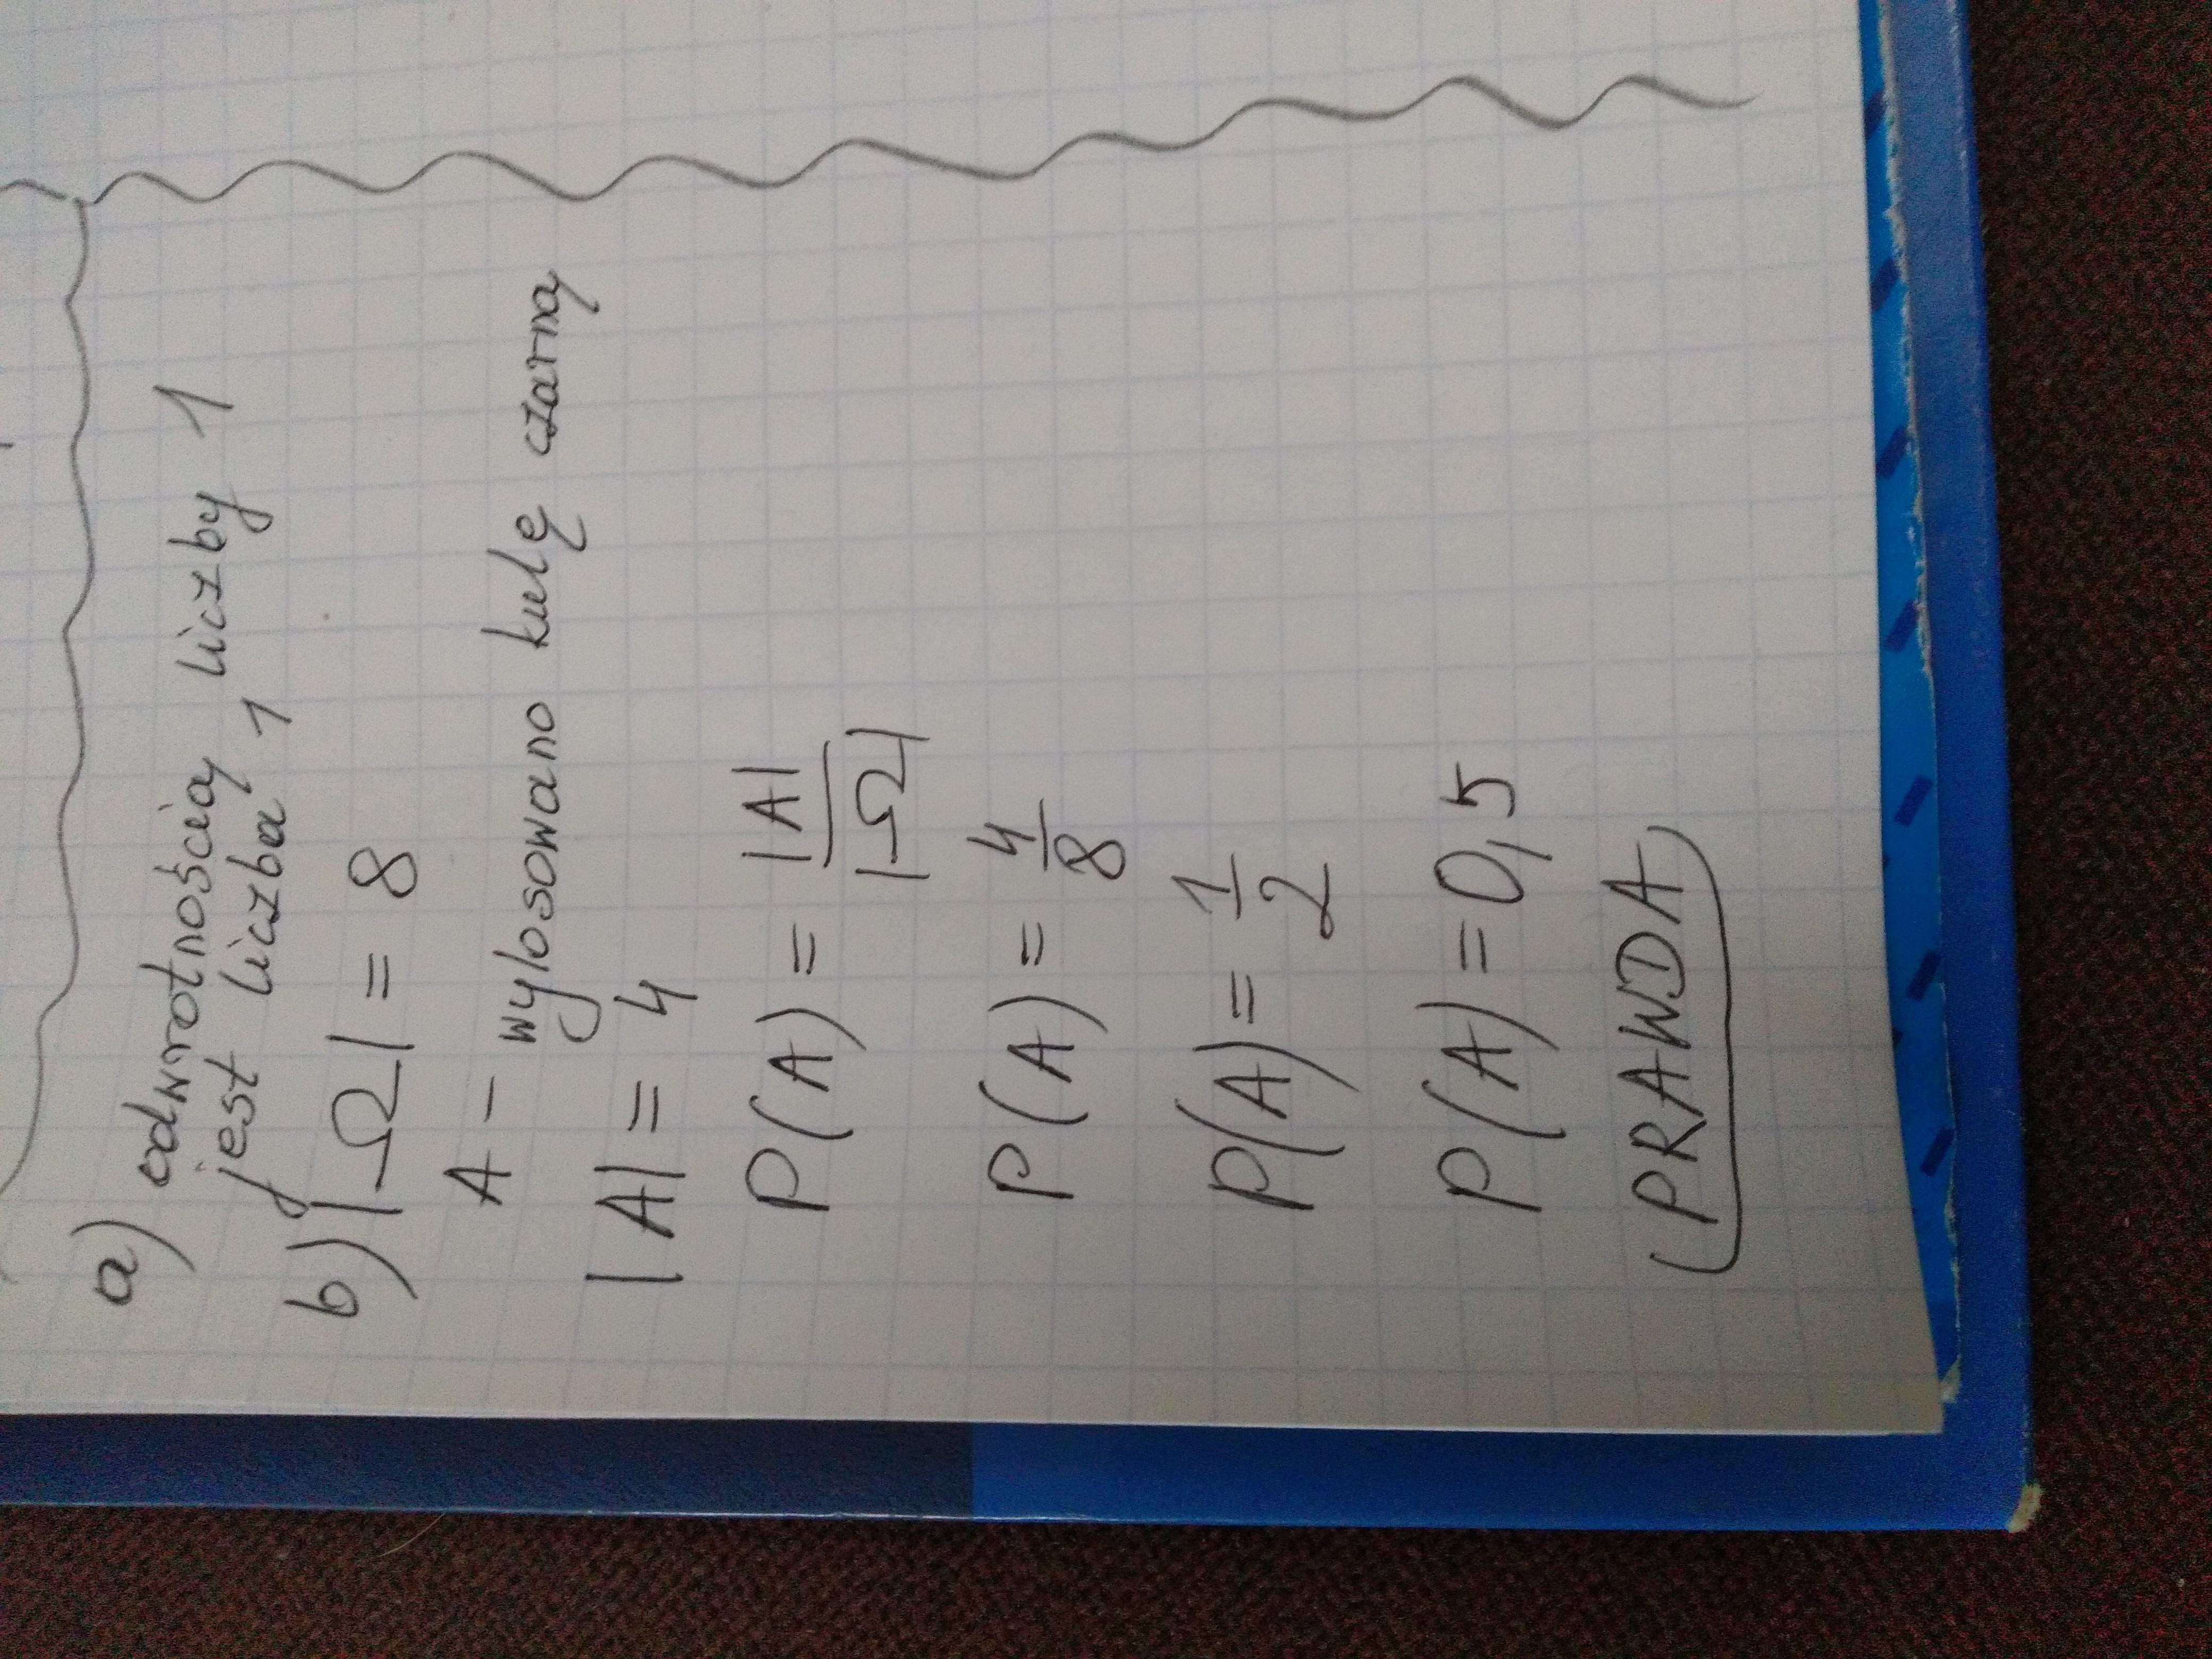 a) odwrotnością liczby 1
jest liczba 1
b) |Ω| = 8
A - wylosowano kulę czarną
|A| = 4
P(A) = |A| / |Ω|
P(A) = 4/8
P(A) = 1/2
P(A) = 0,5
PRAWDA